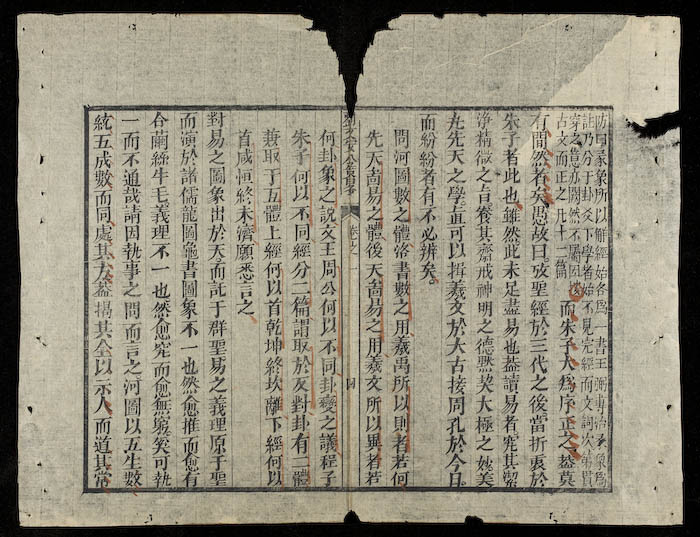 昉曰彖象所以解經始各為 書王弼專治彖象為
註乃分于卦爻下學者始不見完經而文詞次第貫
穿之意亦闕然不屬因復
古文而正之凡十二篇
而朱子大為序正之蓋莫
有間然者矣愚故曰攷聖經於三代之後當折衷於
朱子者此也雖然此未足盡易也蓋讀易者究其潔
淨精微之旨養其齋戒神明之德默契大極之妙美
丸先天之學直可以揖羲文於大古接周孔於今日
而紛紛者有不必辨矣
問河圖數之體洛書數之用羲禹所以則者若何
先天啇易之體後天啇易之用羲文所以異者若
劉文安公 卷之一 四
何卦象之說文王周公何以不同卦變之議程子
朱子何以不同經分二篇謂取於反對卦有二體
兼取于互體上經何以首乾坤終坎離下經何以
首咸恒終未濟願悉言之
對易之圖象出於天而託于群聖易之義理原于聖
而演於諸儒龍圖龜書圖象不一也然愈推而愈有
合繭絲牛毛義理不一也然愈究而愈無窮矣可執
一而不通哉請因執事之問而言之河圖以五生數
統五成數而同處其方蓋揭其全以示人而道其常